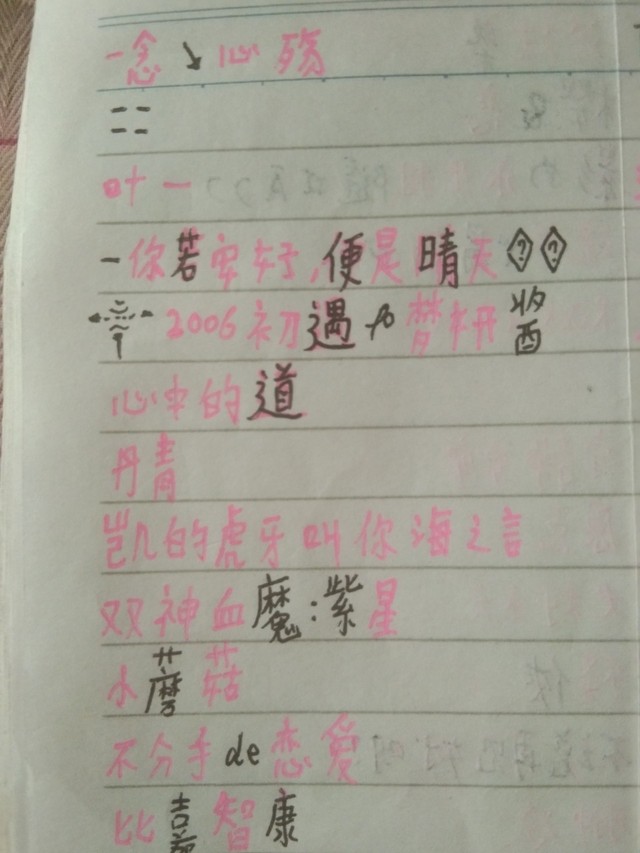 一念↘心殇
二二
叶一
一你若安好,便是晴天
2006初遇
心中的道
丹青
凯的虎牙叫你海之言
双神血魔:紫星
小蘑菇
不分手de恋爱
比喜智康